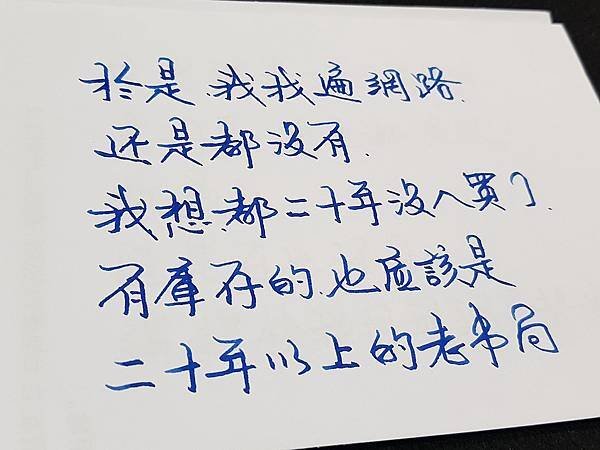 於是,我找遍網路.
还是都沒有.
我想,都二十年沒人買了.
有庫存的,也应該是
二十年以上的老书局